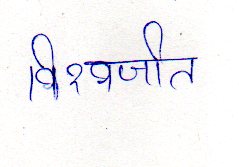 विश्वजीत